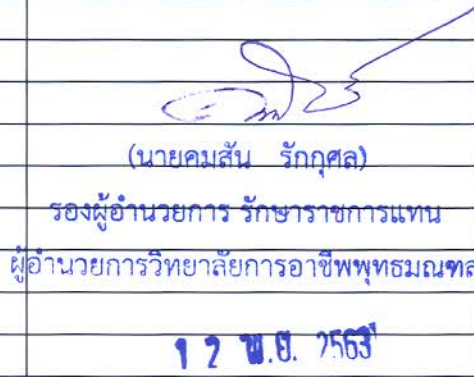 (นายคมสัน รักกุศล)
รองผู้อำนวยการ รักษาราชการแทน
ผู้อำนวยการวิทยาลัยการอาชีพพุทธมณฑล
1 2 พ.ย. 2563